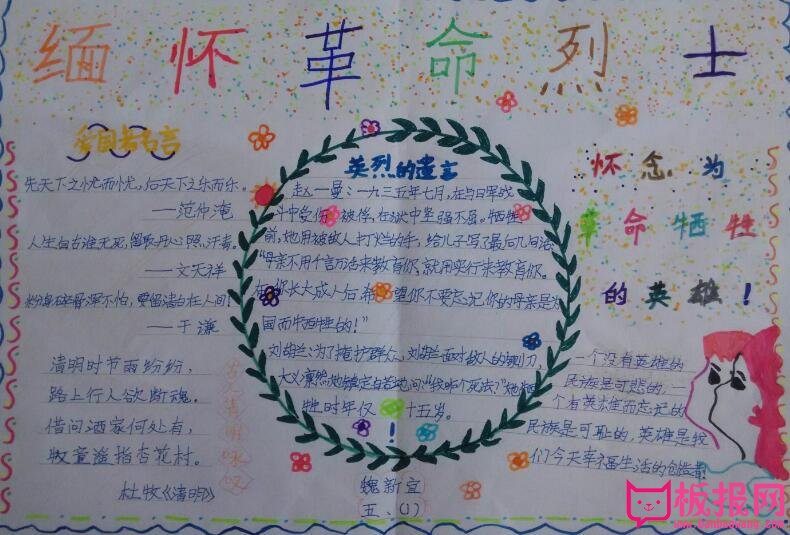 缅怀革命烈士
爱国者名言
先天下之忧而忧，后天下之乐而乐。
——范仲淹
人生自古谁无死，留取丹心照汗青。
——文天祥
粉骨碎身浑不怕，要留清白在人间！
——于谦
清明时节雨纷纷，
路上行人欲断魂。
借问酒家何处有，
牧童遥指杏花村。
杜牧《清明》
英烈的遗言
赵一曼：一九三五年七月，在与日军战
斗中受伤被俘，在狱中坚强不屈。牺牲
前，她用被敌人打烂的手，给儿子写了最后几句话
“母亲不用千言万语来教育你，就用实行来教育你。
在你长大成人后希望你不要忘记你的母亲是为
国而牺牲的！”
刘胡兰：为了掩护群众，刘胡兰面对敌人的铡刀
大义凛然，她镇定自若地问：“我咋个死法？”她牺
牲时年仅十五岁。
魏新宜
五、(1)
怀念为
革命牺牲
的英雄！
一个没有英雄的
民族是可悲的，一
个有英雄而忘记的
民族是可耻的，英雄是我
们今天幸福生活的创造者
板报网
www.banbaowang.com